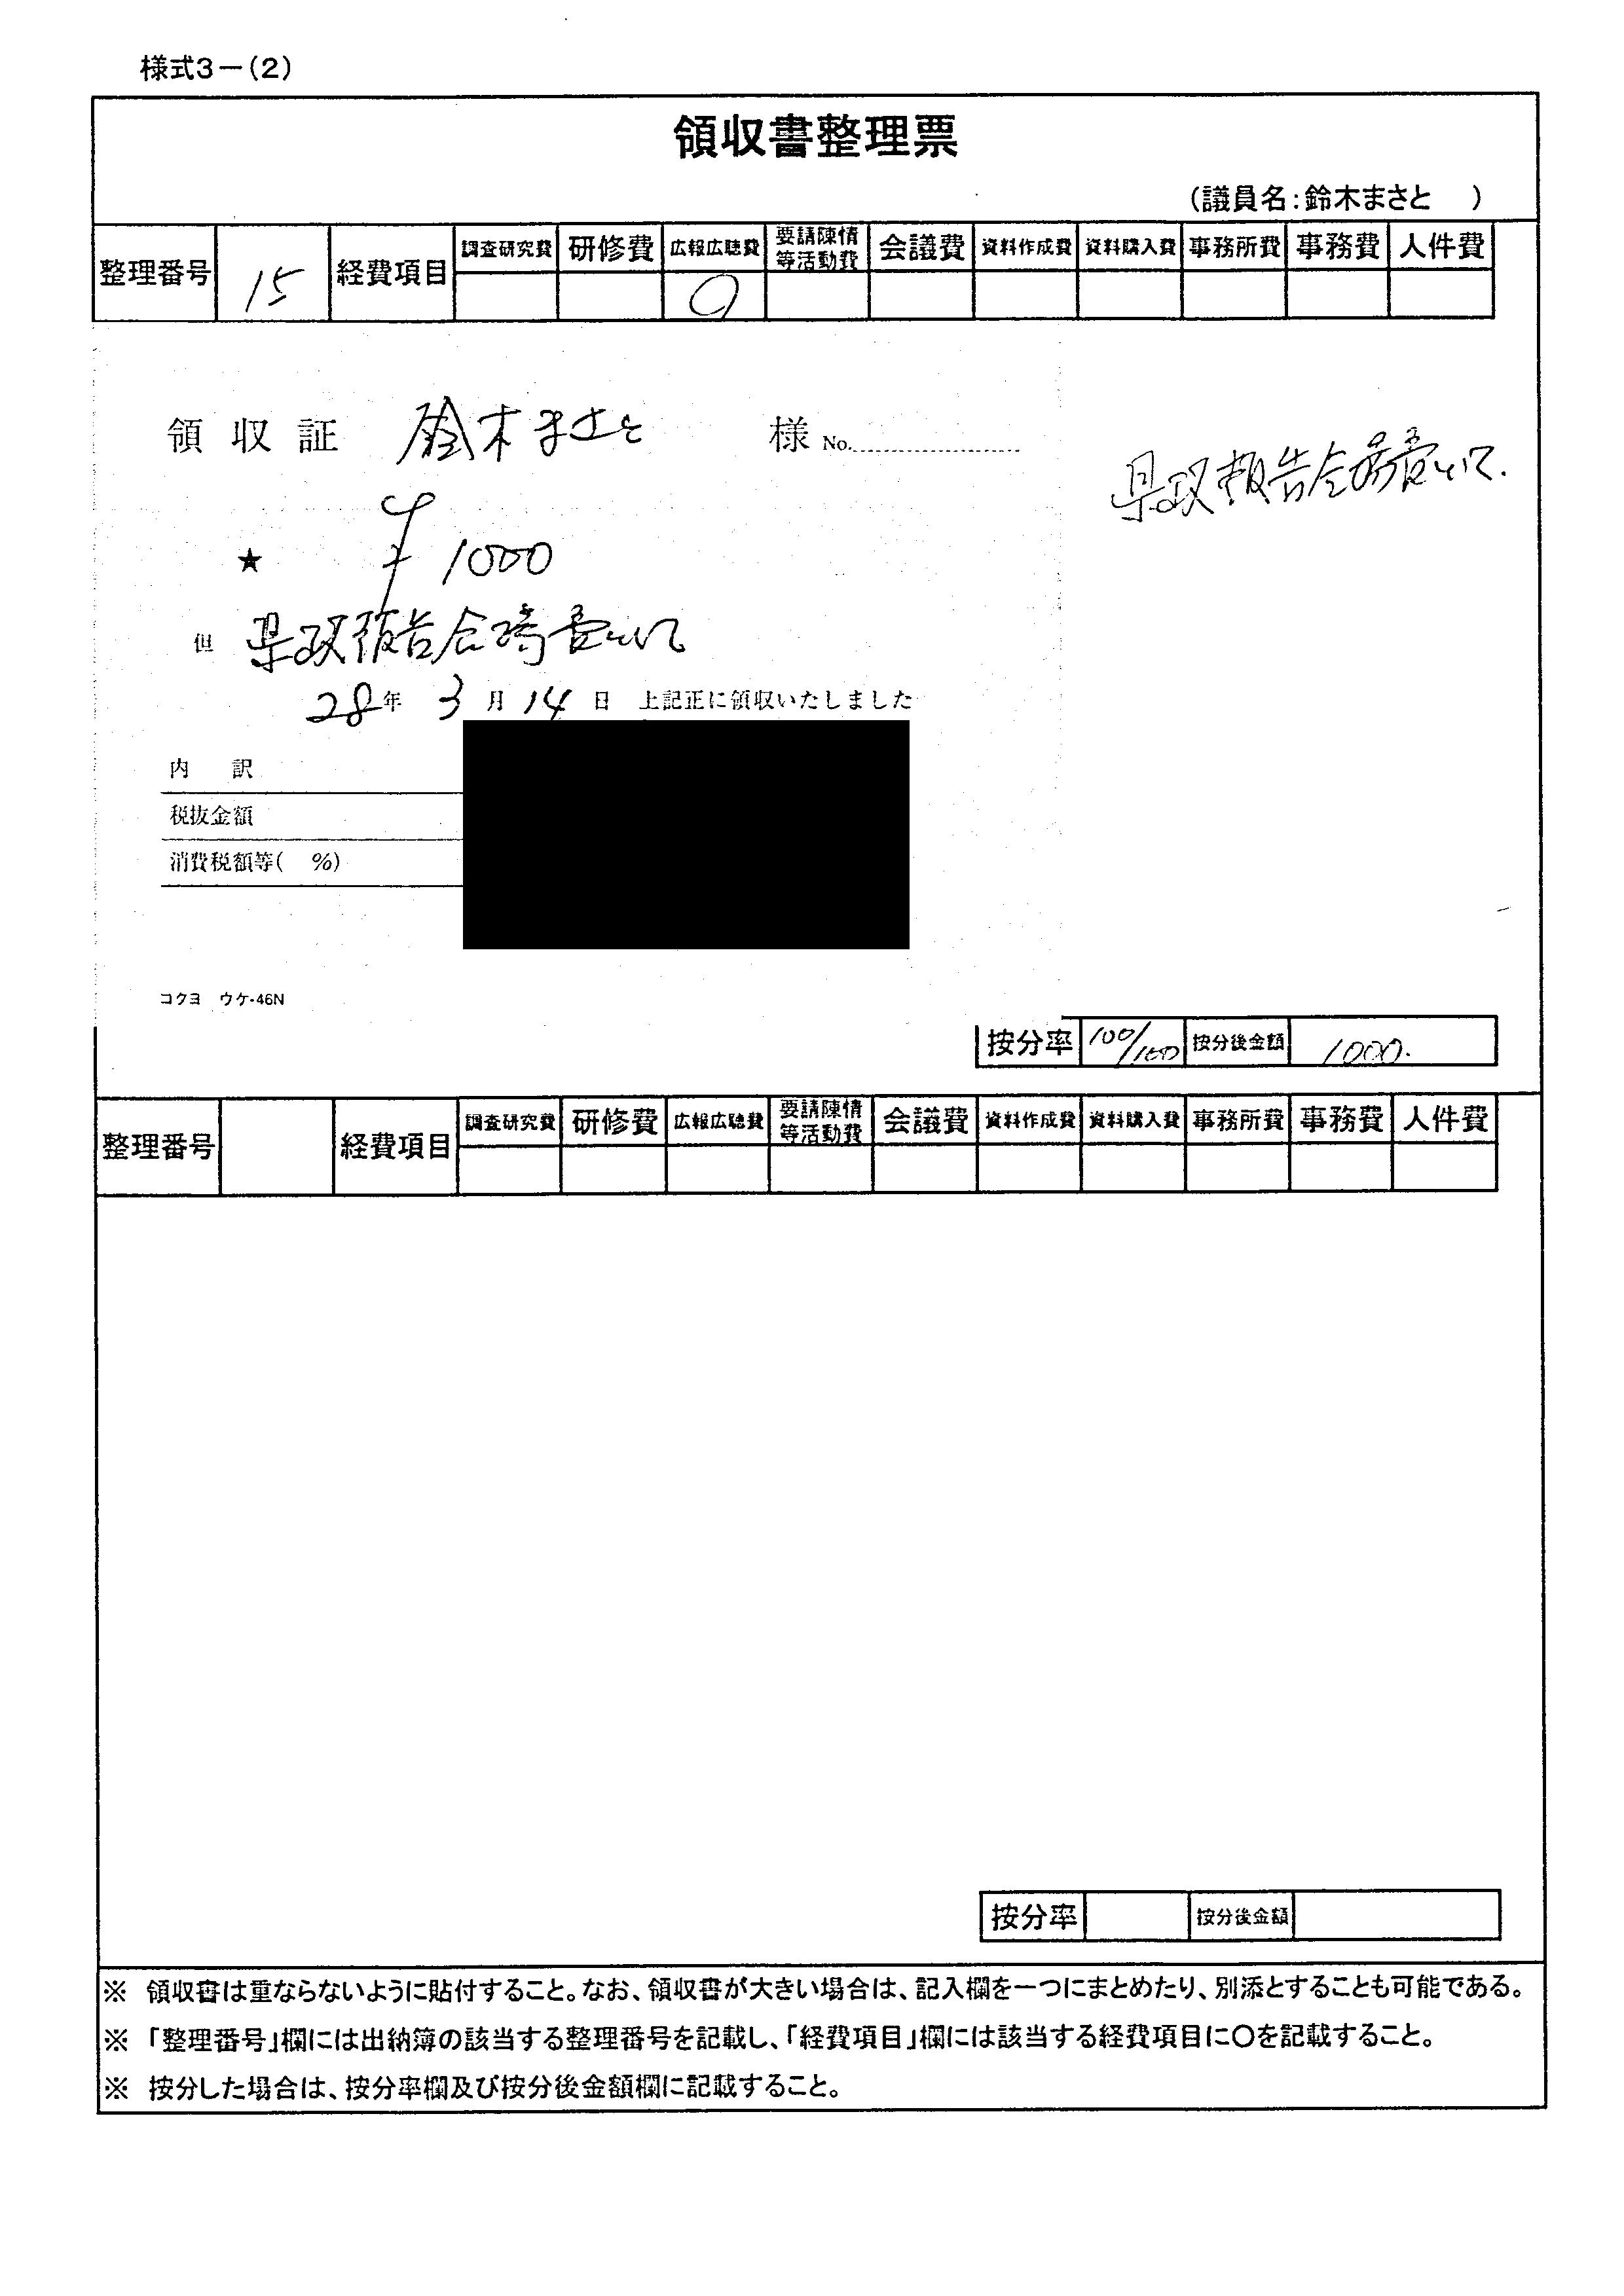 様式3-(2)
領収書整理票
(議員名:鈴木まさと )
整理番号 15 経費項目 調査研究費 研修費 広報広聴費 要請陳情等活動費 会議費 資料作成費 資料購入費 事務所費 事務費 人件費
○
領収証 鈴木まさと 様 No.
県政報告会場費として.
★ ¥1000
但 県政報告会場費として
28年 3月 14日 上記正に領収いたしました
内 訳
税抜金額
消費税額等( %)
コクヨ ウケ-46N
按分率 100/100 按分後金額 1000.
整理番号 経費項目 調査研究費 研修費 広報広聴費 要請陳情等活動費 会議費 資料作成費 資料購入費 事務所費 事務費 人件費
按分率 按分後金額
※ 領収書は重ならないように貼付すること。なお、領収書が大きい場合は、記入欄を一つにまとめたり、別添とすることも可能である。
※ 「整理番号」欄には出納簿の該当する整理番号を記載し、「経費項目」欄には該当する経費項目に○を記載すること。
※ 按分した場合は、按分率欄及び按分後金額欄に記載すること。